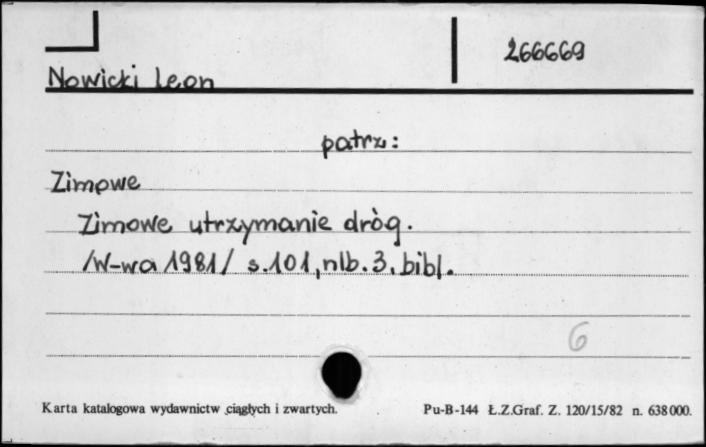 266669
Nowicki Leon
patrz:
Zimowe
Zimowe utrzymanie dróg.
/W-wa 1981/ s.101, nlb.3, bibl.
6
Karta katalogowa wydawnictw ciągłych i zwartych. Pu-B-144 Ł.Z.Graf. Z. 120/15/82 n. 638 000.